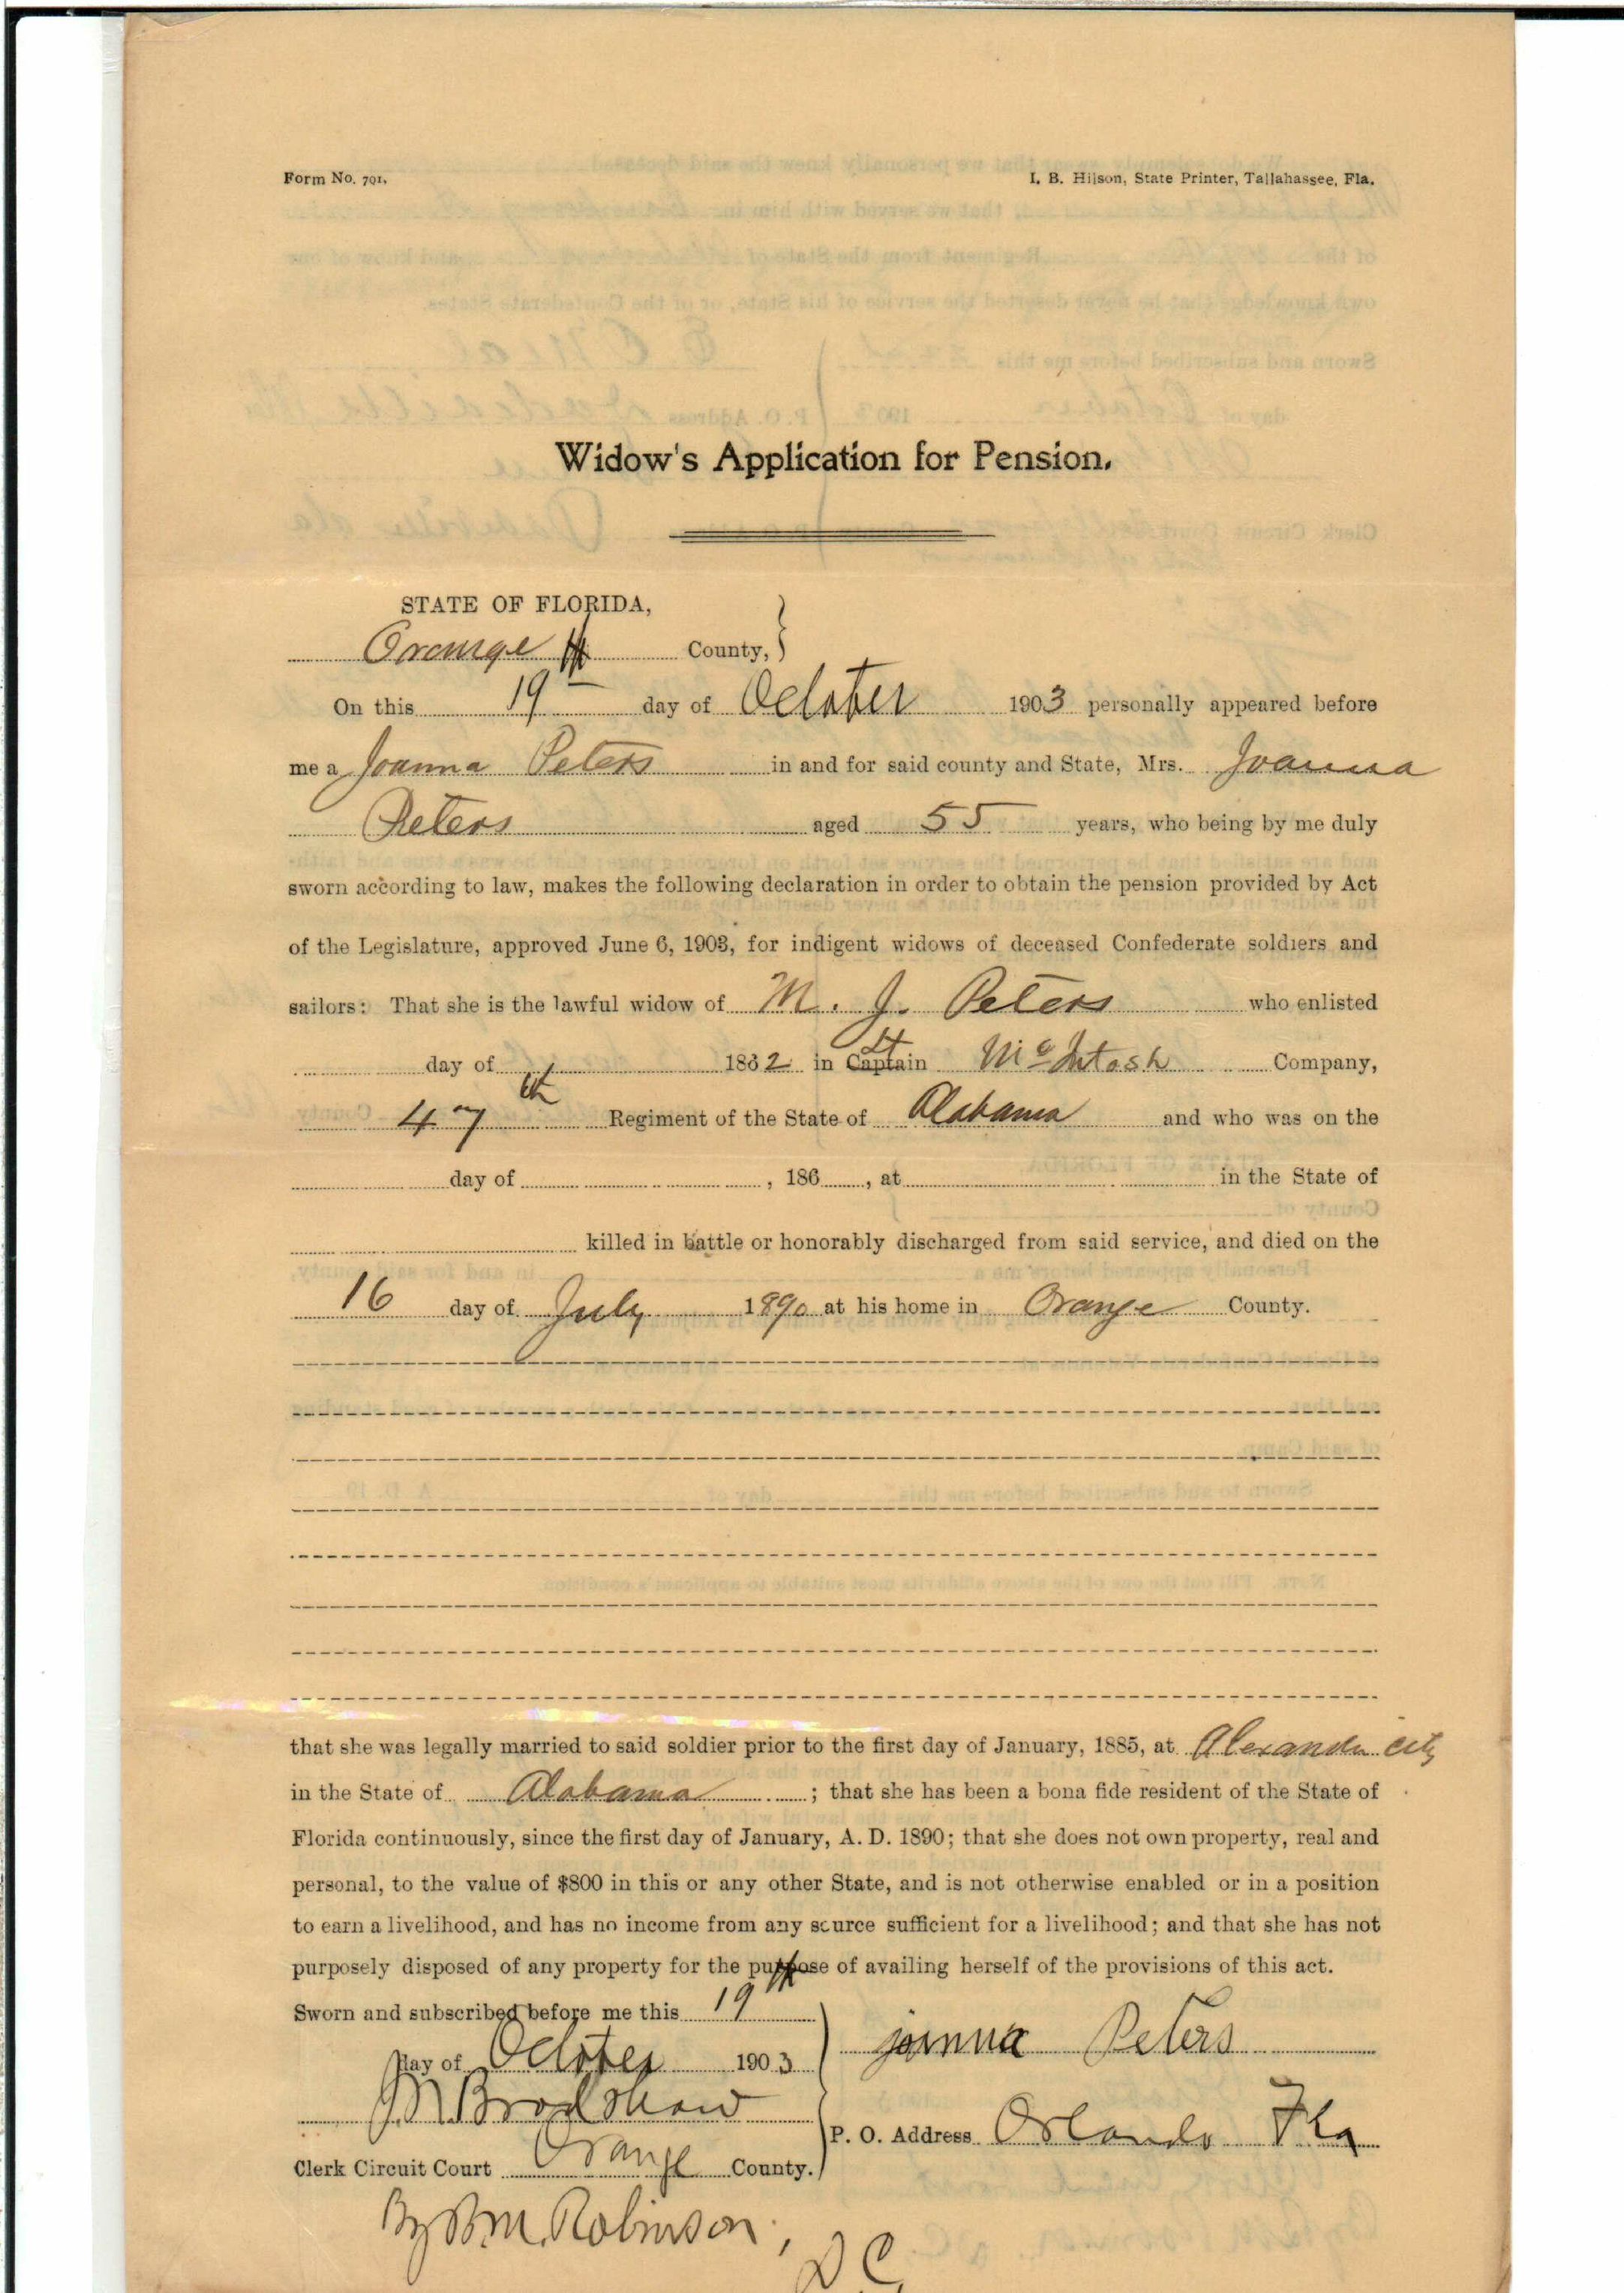 Form No. 701.
I. B. Hilson, State Printer, Tallahassee, Fla.
Widow's Application for Pension.
STATE OF FLORIDA,
Orange County,
On this 19th day of October 1903 personally appeared before
me a Joanna Peters in and for said county and State, Mrs. Joanna
Peters aged 55 years, who being by me duly
sworn according to law, makes the following declaration in order to obtain the pension provided by Act
of the Legislature, approved June 6, 1903, for indigent widows of deceased Confederate soldiers and
sailors: That she is the lawful widow of M. J. Peters who enlisted
day of 1862 in Lt Captain McIntosh Company,
47th Regiment of the State of Alabama and who was on the
day of , 186 , at in the State of
killed in battle or honorably discharged from said service, and died on the
16 day of July 1890 at his home in Orange County.
that she was legally married to said soldier prior to the first day of January, 1885, at Alexander City
in the State of Alabama ; that she has been a bona fide resident of the State of
Florida continuously, since the first day of January, A. D. 1890; that she does not own property, real and
personal, to the value of $800 in this or any other State, and is not otherwise enabled or in a position
to earn a livelihood, and has no income from any source sufficient for a livelihood; and that she has not
purposely disposed of any property for the purpose of availing herself of the provisions of this act.
Sworn and subscribed before me this 19th
day of October 1903
joanna Peters
J M Bradshaw
P. O. Address Orlando Fla
Clerk Circuit Court Orange County.
By B. M. Robinson,
D C.